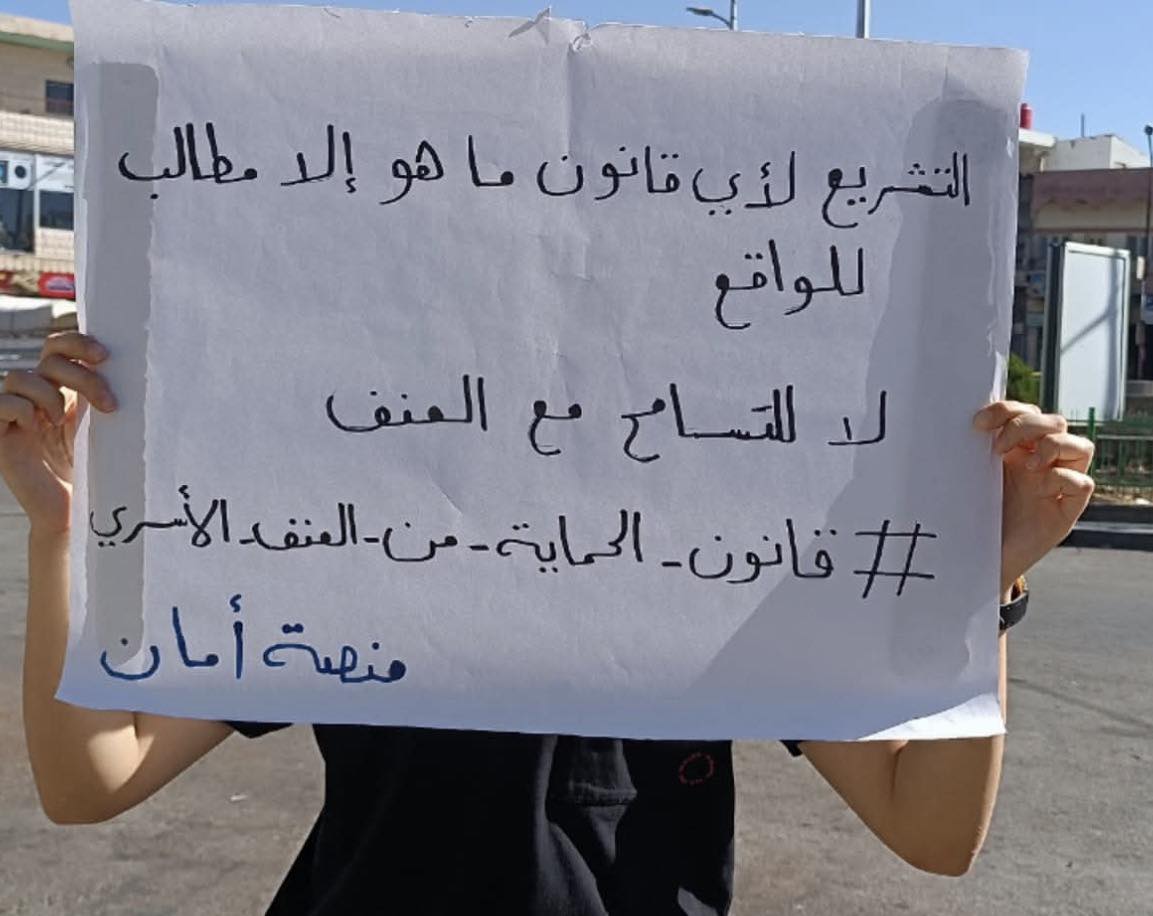 التشريع لأي قانون ما هو إلا مطالب
للواقع
لا للتسامح مع العنف
# قانون_الحماية_من_العنف_الأسري
منصة أمان